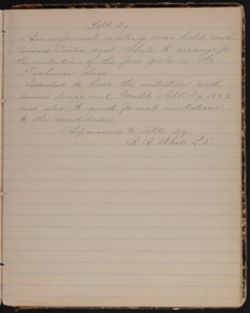 Sept. 29
An informal meeting was held with
and White to arrange for
the initiation of the four girls in the
Freshman class.
Decided to have the initiation with
and Gould Sept. 29, 188
and also to send formal invitations
to the candidates.
Adjourned to Sept. 29.
White